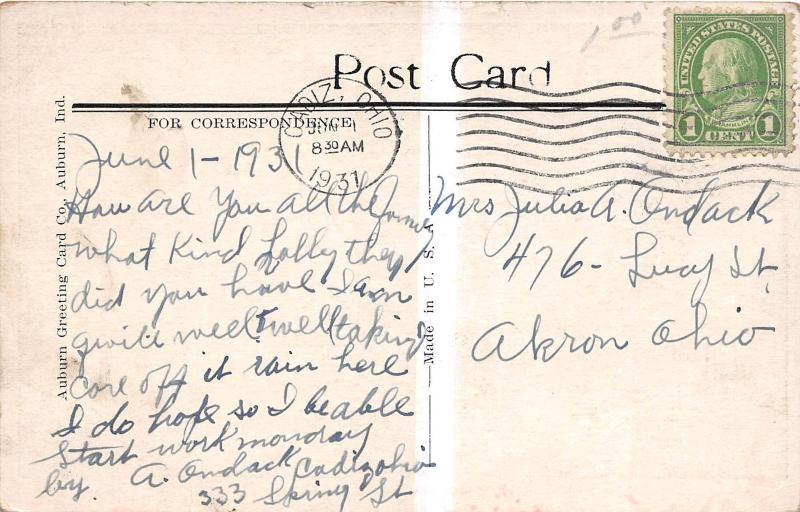 1.00
Post Card
UNITED STATES POSTAGE
FRANKLIN
1 CENT 1
FOR CORRESPONDENCE
CADIZ, OHIO
JUN 1
8 30 AM
1931
Auburn Greeting Card Co., Auburn, Ind.
Made in U. S. A.
June 1 - 1931
How are You all the
what Kind they
did you have I am
quite well taking
care off it rain here
I do hope so I be able
Start work monday
by. A. Ondack Cadiz ohio
333 Spring St
Mrs Julia A. Ondack
476 - Lucy St.
Akron Ohio